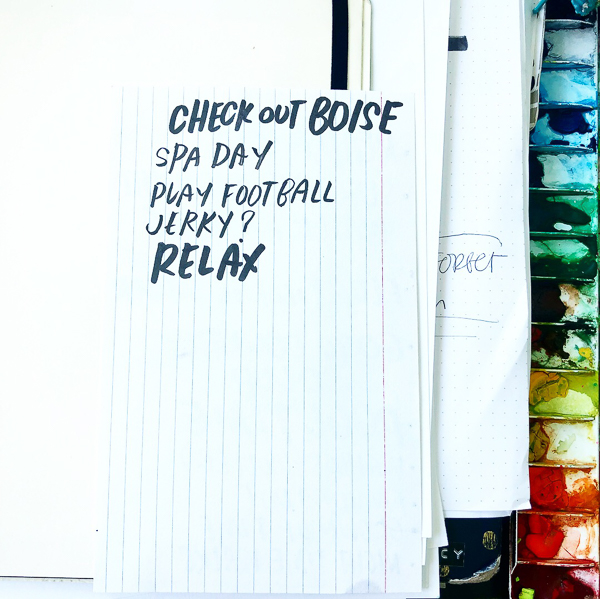 CHECK OUT BOISE
SPA DAY
PLAY FOOTBALL
JERKY?
RELAX